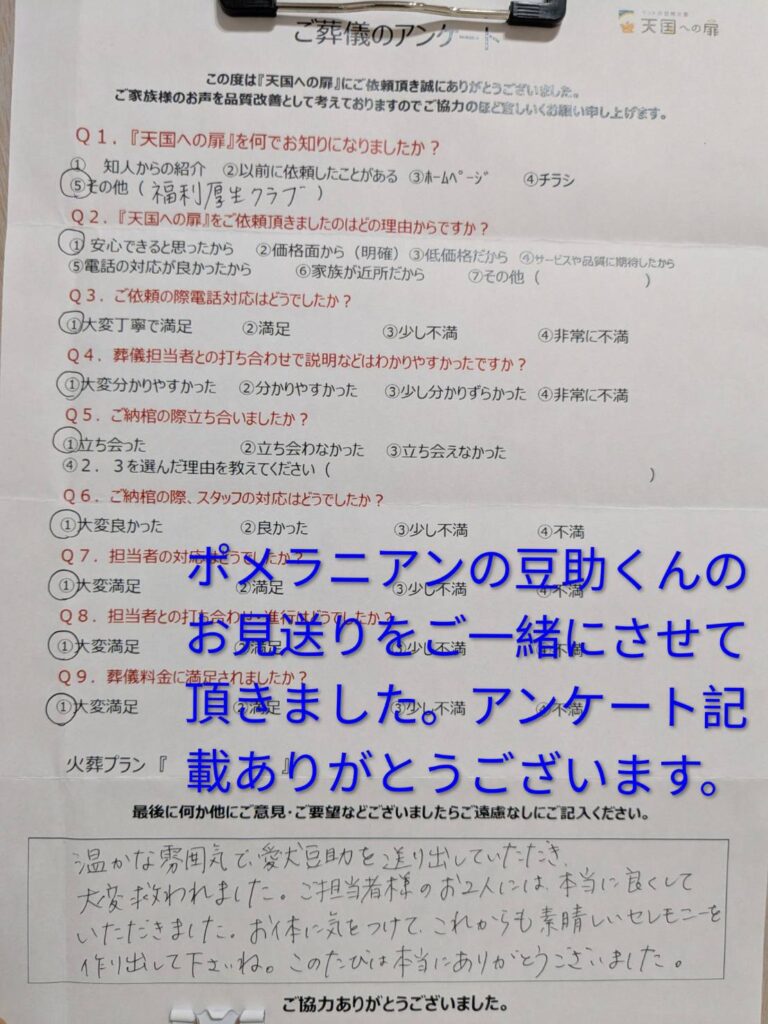 ご葬儀のアンケート
天国への扉
この度は『天国への扉』にご依頼頂き誠にありがとうございました。
ご家族様のお声を品質改善として考えておりますのでご協力のほど宜しくお願い申し上げます。
Q1.『天国への扉』を何でお知りになりましたか?
① 知人からの紹介 ②以前に依頼したことがある ③ホームページ ④チラシ
⑤その他(福利厚生クラブ)
Q2.『天国への扉』をご依頼頂きましたのはどの理由からですか?
① 安心できると思ったから ②価格面から(明確)③低価格だから ④サービスや品質に期待したから
⑤電話の対応が良かったから ⑥家族が近所だから ⑦その他( )
Q3.ご依頼の際電話対応はどうでしたか?
①大変丁寧で満足 ②満足 ③少し不満 ④非常に不満
Q4.葬儀担当者との打ち合わせで説明などはわかりやすかったですか?
①大変分かりやすかった ②分かりやすかった ③少し分かりずらかった ④非常に不満
Q5.ご納棺の際立ち合いましたか?
①立ち会った ②立ち会わなかった ③立ち会えなかった
④2.3を選んだ理由を教えてください( )
Q6.ご納棺の際、スタッフの対応はどうでしたか?
①大変良かった ②良かった ③少し不満 ④不満
Q7.担当者の対応はどうでしたか?
ポメラニアンの豆助くんの
①大変満足 ②満足 ③少し不満 ④不満
Q8.担当者との打ち合わせ、進行はどうでしたか?
お見送りをご一緒にさせて
①大変満足 ②満足 ③少し不満 ④不満
Q9.葬儀料金に満足されましたか?
頂きました。アンケート記
①大変満足 ②満足 ③少し不満 ④不満
載ありがとうございます。
火葬プラン『 』
最後に何か他にご意見・ご要望などございましたらご遠慮なしにご記入ください。
温かな雰囲気で、愛犬豆助を送り出していただき、
大変救われました。ご担当者様のお2人には、本当に良くして
いただきました。お体に気をつけて、これからも素晴しいセレモニーを
作り出して下さいね。このたびは本当にありがとうございました。
ご協力ありがとうございました。